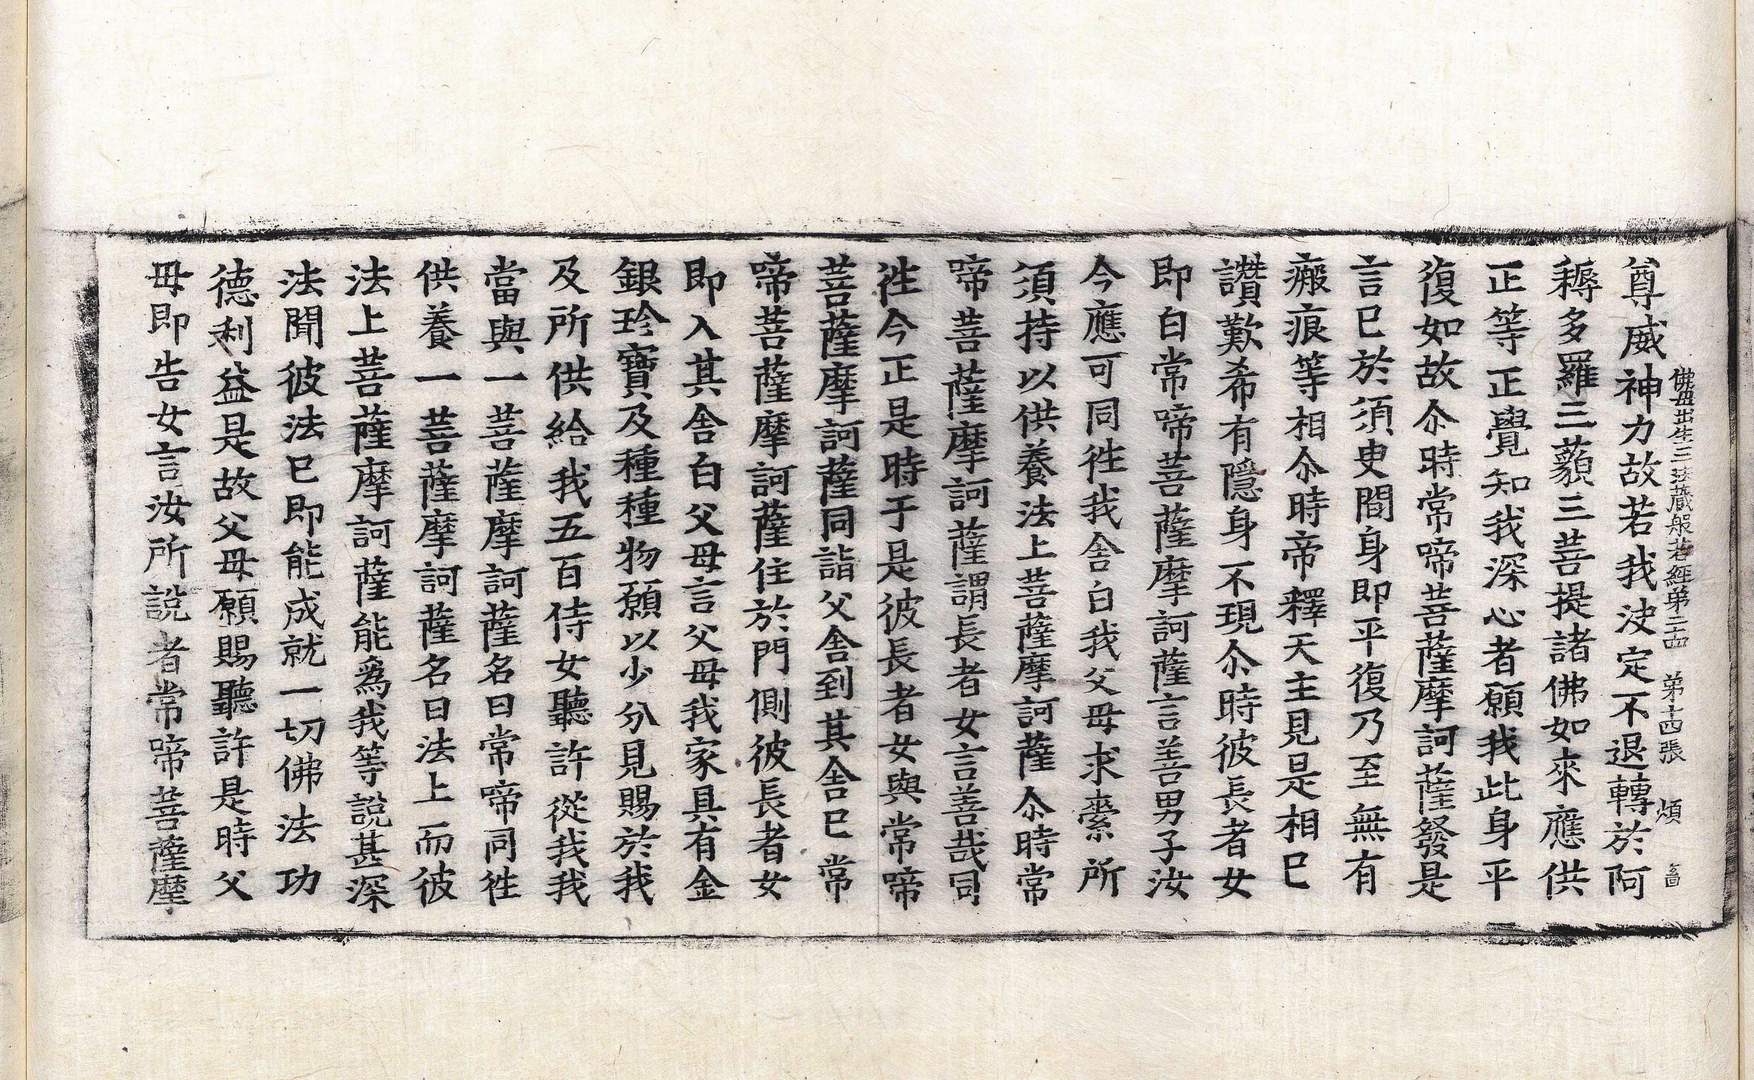 佛母出生三法藏般若經第二十四　第十四張　煩
尊威神力故若我決定不退轉於阿
耨多羅三藐三菩提諸佛如來應供
正等正覺知我深心者願我此身平
復如故尒時常啼菩薩摩訶薩發是
言已於須臾間身即平復乃至無有
瘢痕等相尒時帝釋天主見是相已
讚歎希有隱身不現尒時彼長者女
即白常啼菩薩摩訶薩言善男子汝
今應可同徃我舍白我父母求索所
須持以供養法上菩薩摩訶薩尒時常
啼菩薩摩訶薩謂長者女言善哉同
徃今正是時于是彼長者女與常啼
菩薩摩訶薩同詣父舍到其舍已常
啼菩薩摩訶薩住於門側彼長者女
即入其舍白父母言父母我家具有金
銀珍寶及種種物願以少分見賜於我
及所供給我五百侍女聽許從我我
當與一菩薩摩訶薩名曰常啼同徃
供養一菩薩摩訶薩名曰法上而彼
法上菩薩摩訶薩能爲我等說甚深
法聞彼法已即能成就一切佛法功
德利益是故父母願賜聽許是時父
母即告女言汝所說者常啼菩薩摩